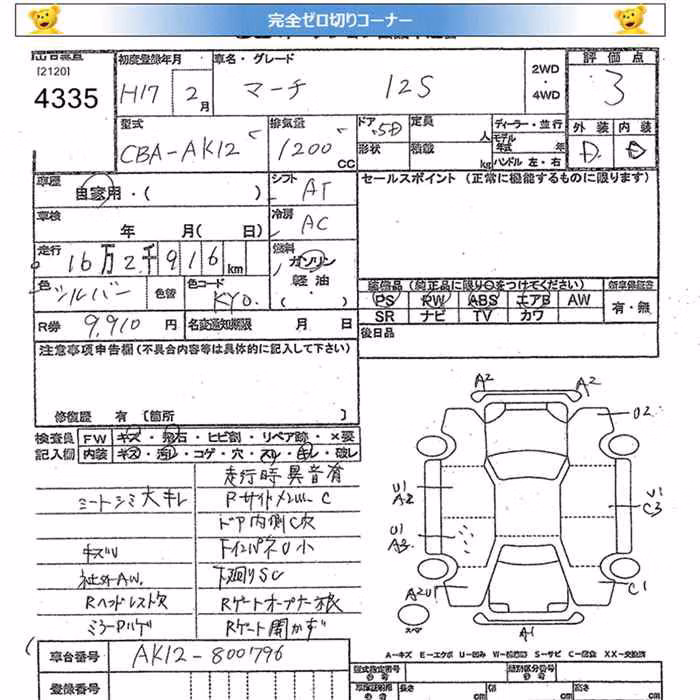 完全ゼロ切りコーナー
[2120]
4335
初度登録年月
H17 2 月
車名・グレード
マーチ 12S
2WD
・
4WD
評価点
3
外装 内装
D
型式
CBA-AK12
排気量
1200 CC
ドア 5D
形状
定員 人
積載 kg
ディーラー・並行
モデル
年式 年
ハンドル 左・右
車歴
自家用・( )
シフト
AT
車検
年 月( 日)
冷房
AC
走行
16万2千916 km
燃料
ガソリン
軽油
・( )・
色
シルバー
色替
色コード
KY0.
R券 9,910 円
名変通知期限 月 日
セールスポイント (正常に機能するものに限ります)
装備品 (純正品に限り○をつけてください)
PS PW ABS エアB AW
SR ナビ TV カワ
新車保証書
有・無
後日品
注意事項申告欄(不具合内容等は具体的に記入して下さい)
修復歴 有 〔箇所 〕
検査員
記入欄
FW キズ・飛石・ヒビ割・リペア跡・×要
内装 キズ・汚レ・コゲ・穴・スレ・キレ・破レ
走行時異音有
シートシミ大キレ
ドア内側C欠
キズU
社外AW.
下廻りSC
Rヘッドレスト欠
Rゲートオープナー狼
Rゲート開かず
A2
A2
U2
U1
A2
U1
A3
U1
C3
A2U1
C1
A1
スペア
A-キズ E-エクボ U-凹み W-補修跡 S-サビ C-腐食 XX-交換済
車台番号
AK12-800796
登録番号
型式指定番号
類別区分番号
長さ
幅
高さ